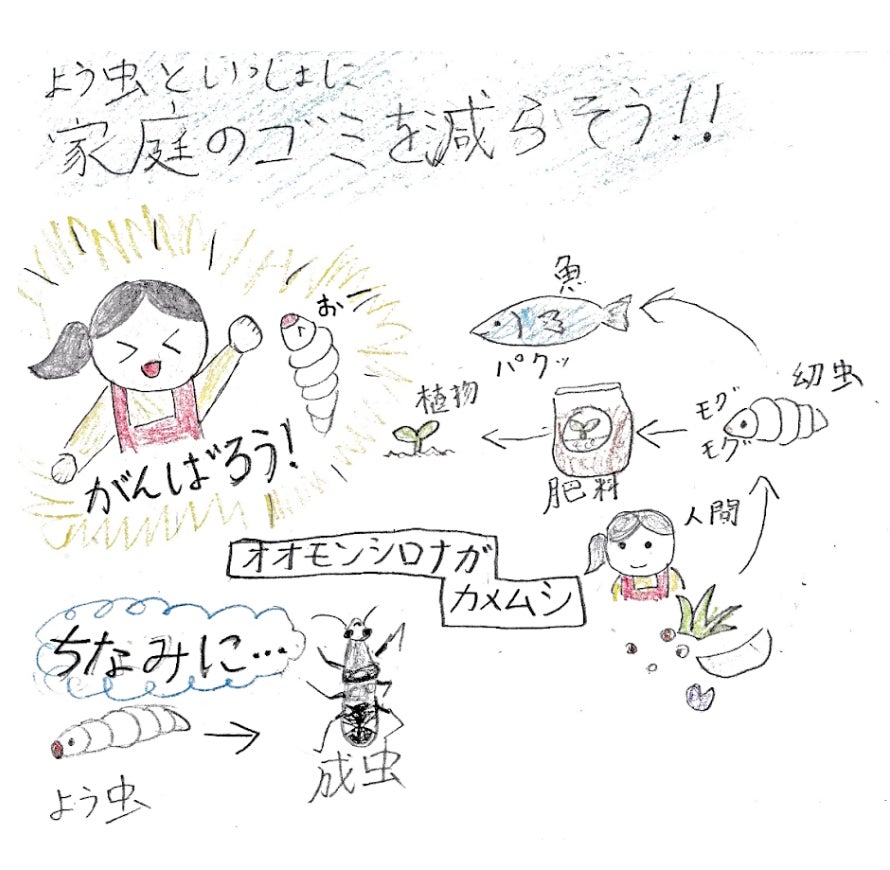 よう虫といっしょに
家庭のゴミを減らそう!!
おー
がんばろう!
魚
パクッ
幼虫
モグ
モグ
肥料
植物
人間
オオモンシロナガ
カメムシ
ちなみに…
よう虫
成虫